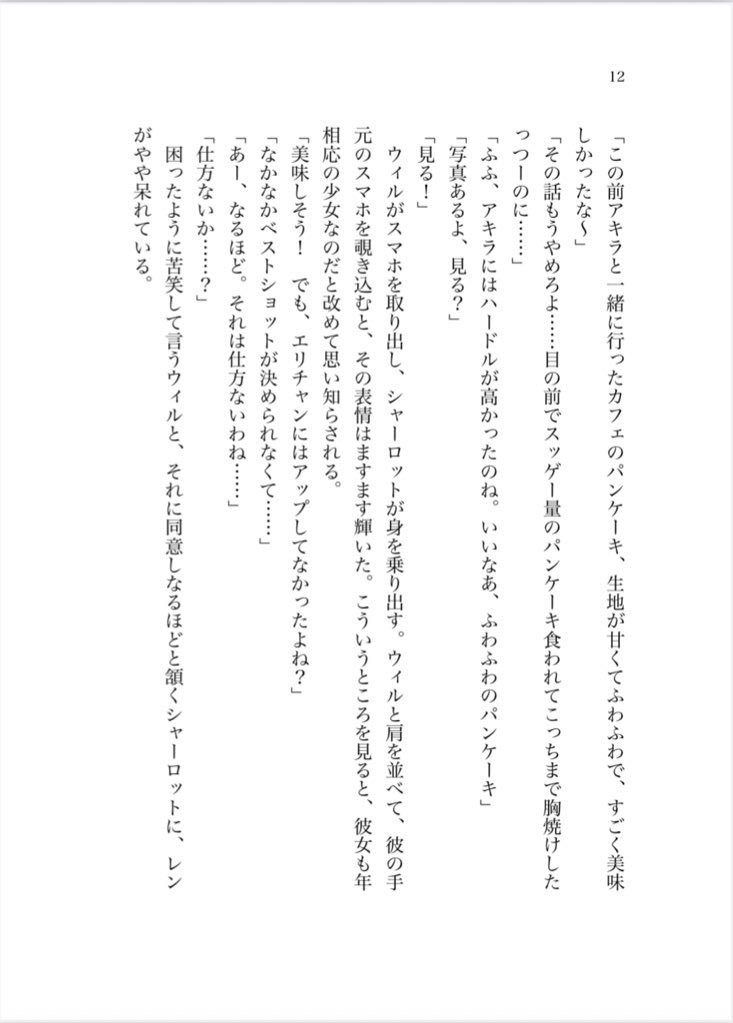 12
「この前アキラと一緒に行ったカフェのパンケーキ、生地が甘くてふわふわで、すごく美味
しかったな～」
「その話もうやめろよ……目の前でスッゲー量のパンケーキ食われてこっちまで胸焼けした
っつーのに……」
「ふふ、アキラにはハードルが高かったのね。いいなあ、ふわふわのパンケーキ」
「写真あるよ、見る？」
「見る！」
　ウィルがスマホを取り出し、シャーロットが身を乗り出す。ウィルと肩を並べて、彼の手
元のスマホを覗き込むと、その表情はますます輝いた。こういうところを見ると、彼女も年
相応の少女なのだと改めて思い知らされる。
「美味しそう！　でも、エリチャンにはアップしてなかったよね？」
「なかなかベストショットが決められなくて……」
「あー、なるほど。それは仕方ないわね……」
「仕方ないか……？」
　困ったように苦笑して言うウィルと、それに同意しなるほどと頷くシャーロットに、レン
がやや呆れている。